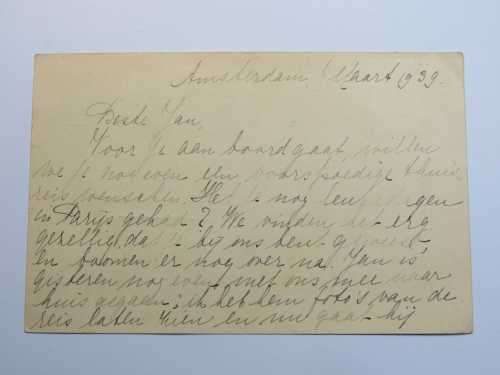 Amsterdam, Maart 1939.
Beste Jan,
Voor je aan boord gaat, willen
we je nog even een voorspoedige thuis
reis wenschen. Heb je nog
in Parijs gehad? We vinden het erg
gezellig, dat je bij ons bent geweest,
en boomen er nog over na. Jan is
gisteren nog even met ons mee naar
huis gegaan; ik heb hem foto's van de
reis laten zien en nu gaat hij